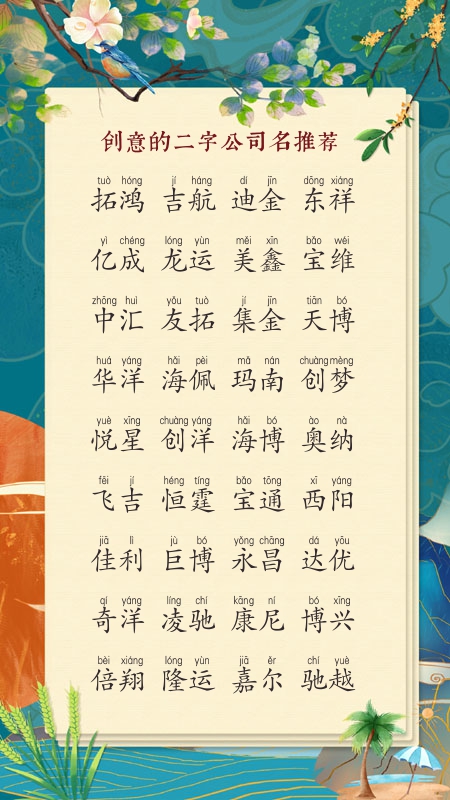 创意的二字公司名推荐
tuò hóng jí háng dí jīn dōng xiáng
拓鸿 吉航 迪金 东祥
yì chéng lóng yùn měi xīn bǎo wéi
亿成 龙运 美鑫 宝维
zhōng huì yǒu tuò jí jīn tiān bó
中汇 友拓 集金 天博
huá yáng hǎi pèi mǎ nán chuàng mèng
华洋 海佩 玛南 创梦
yuè xīng chuàng yáng hǎi bó ào nà
悦星 创洋 海博 奥纳
fēi jí héng tíng bǎo tōng xī yáng
飞吉 恒霆 宝通 西阳
jiā lì jù bó yǒng chāng dá yōu
佳利 巨博 永昌 达优
qí yáng líng chí kāng ní bó xīng
奇洋 凌驰 康尼 博兴
bèi xiáng lóng yùn jiā ěr chí yuè
倍翔 隆运 嘉尔 驰越